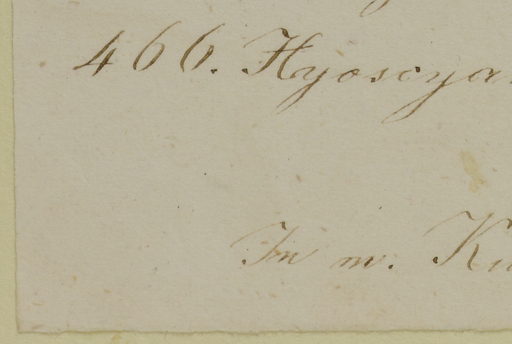 466. Hyoscya
In m. Ku